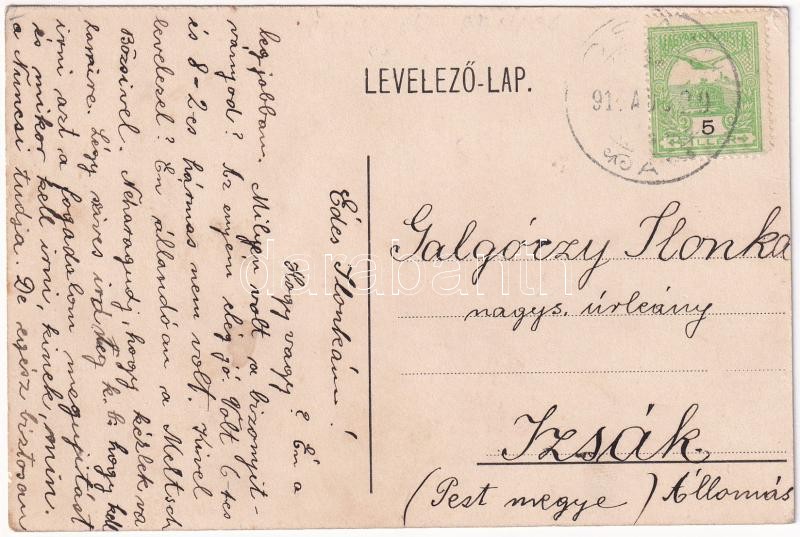 LEVELEZŐ-LAP.
MAGYAR KIR. POSTA
5
FILLÉR
Galgóczy Ilonka
nagys. úrleány
Izsák.
(Pest megye) Állomás
Édes Ilonkám!
Hogy vagy? Én a
legjobban. Milyen volt a bizonyít-
ványod? Az enyém elég jó. Volt 6-tes
és 8-2es hármas nem volt. Kivel
levelezel? Én állandóan a Moltsch
Bözsivel. Neharagudj, hogy kérlek va
lamire. Légy szives ird meg k. b. hogy kell
irni azt a fogadalom megujitást
és mikor kell irni, kinek, min.
a Nuncsi tudja. De egész biztosan
darabanth